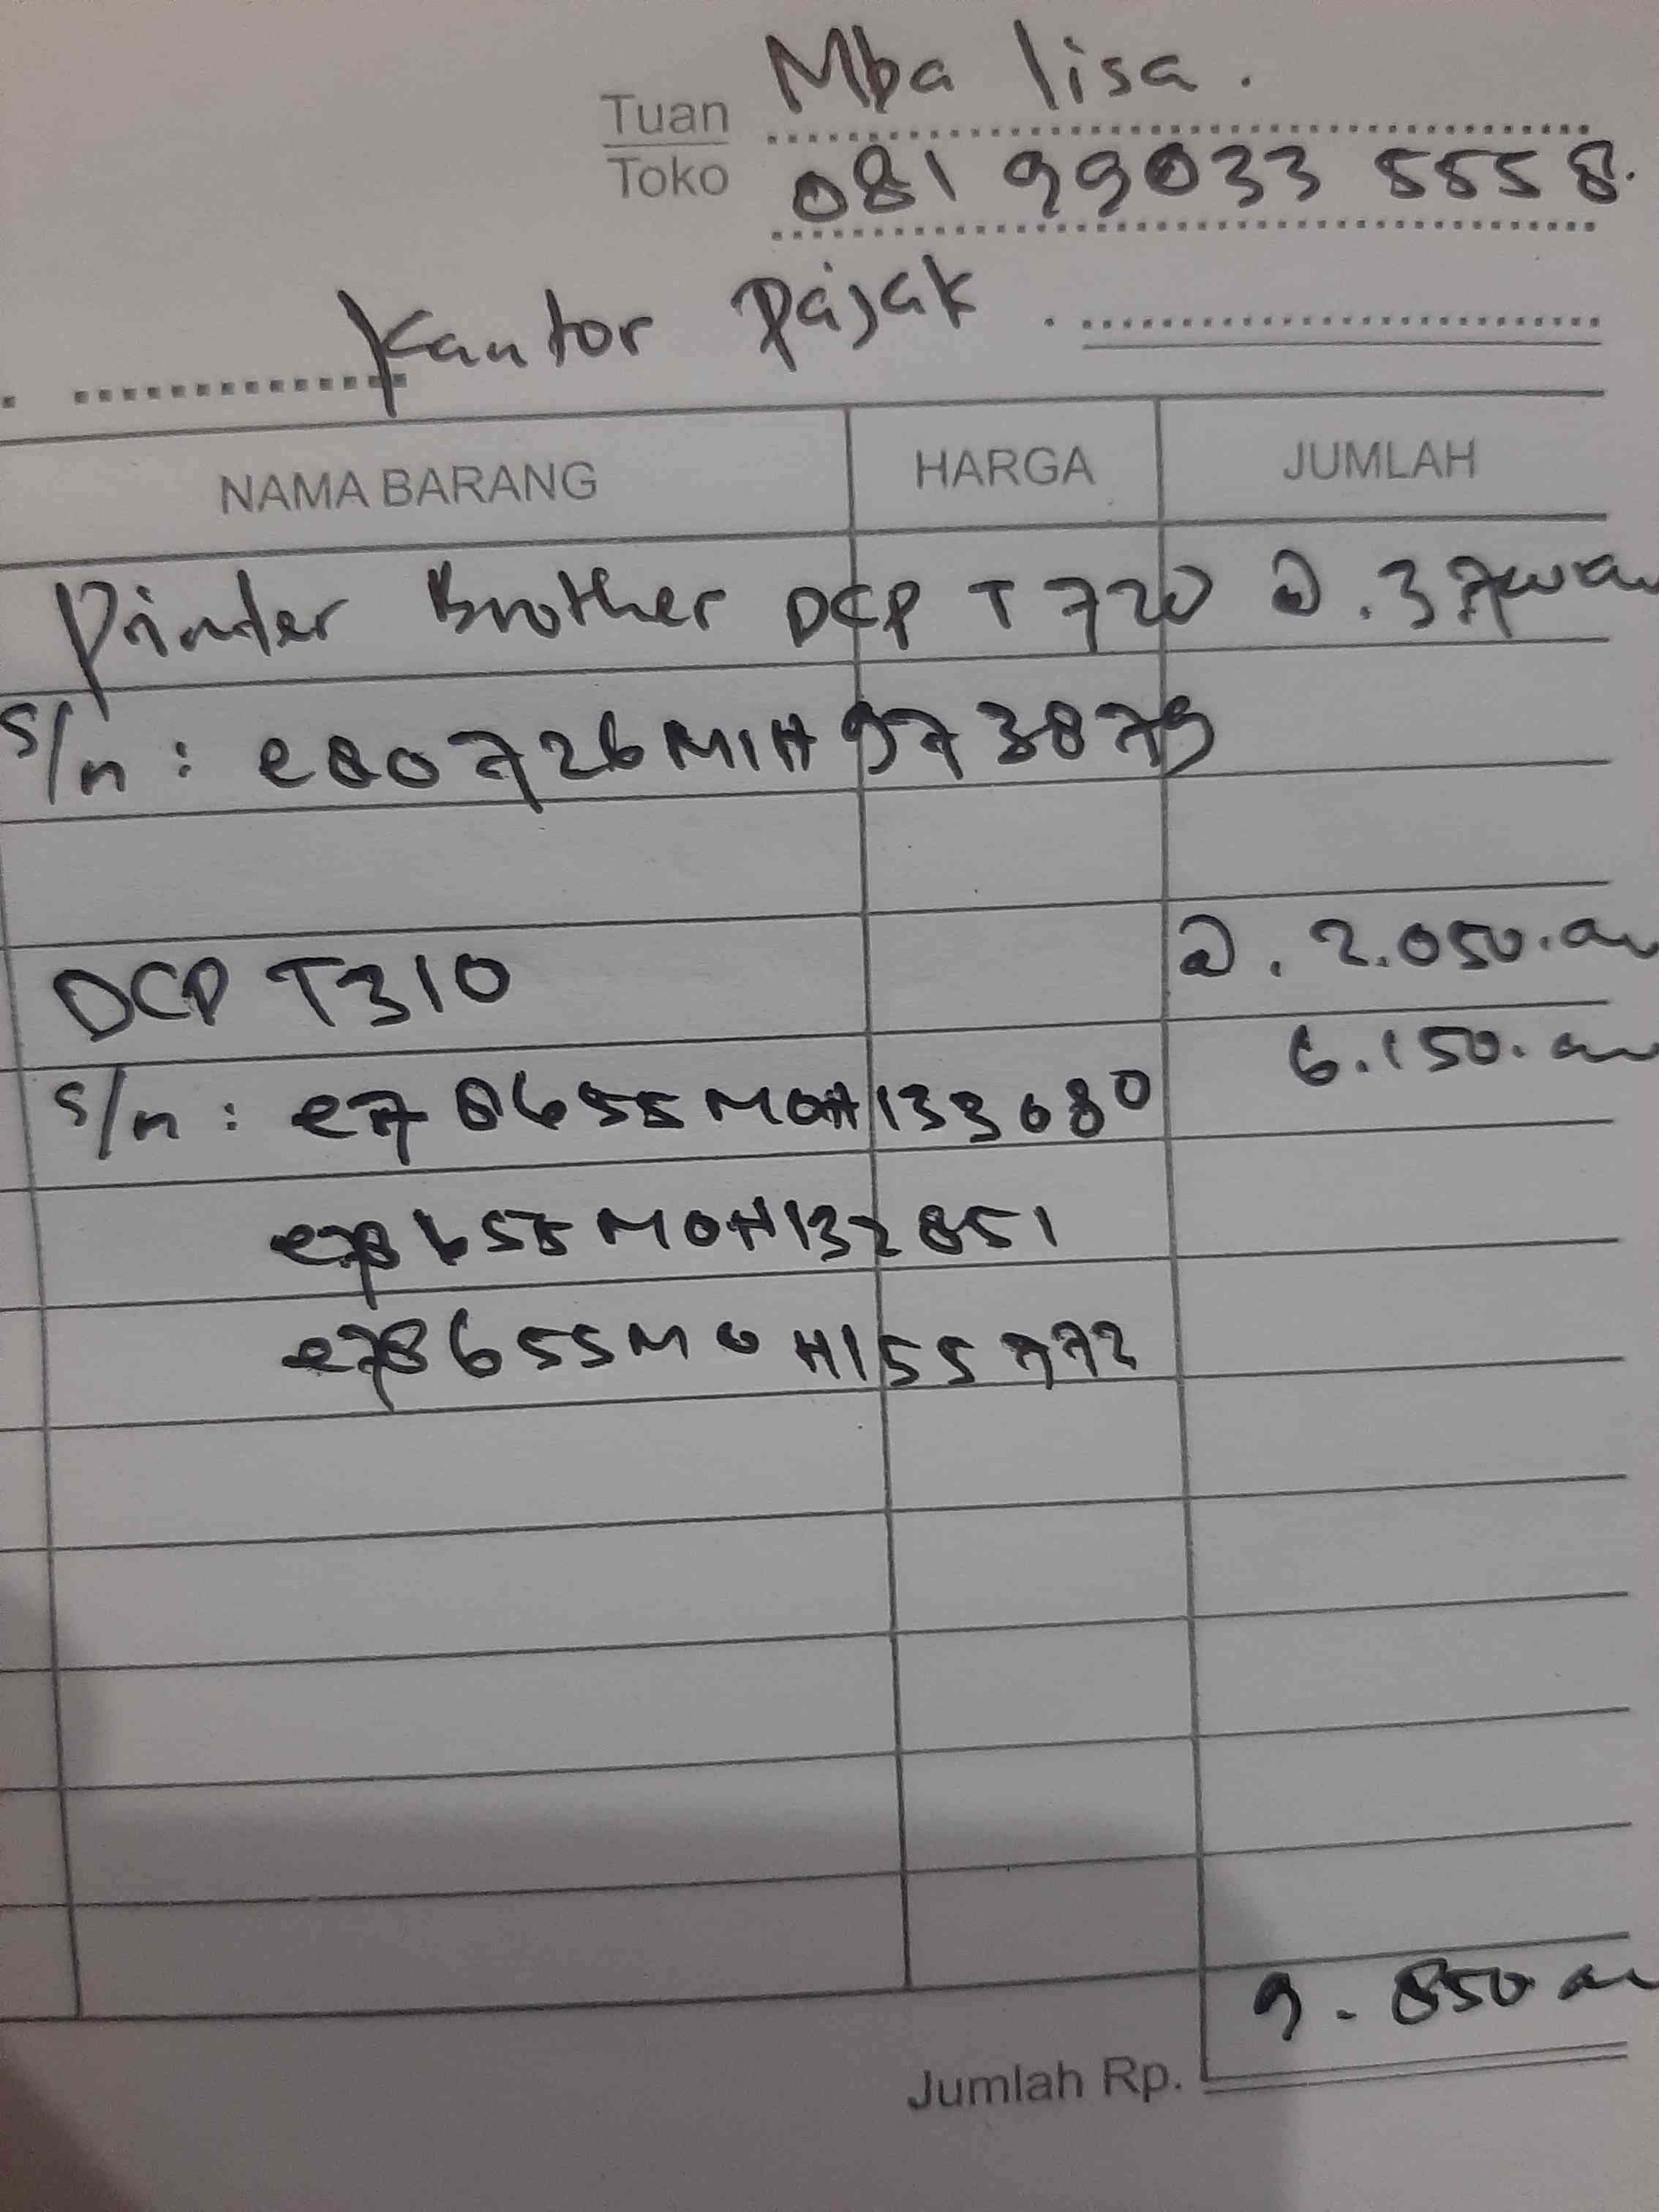 Mba lisa.
Tuan
Toko
081 99033 5558.
Kantor Pajak
NAMA BARANG HARGA JUMLAH
Printer Brother DCP T720 @.
s/n : e80726M1H973879
DCP T310 @. 2.050.000
6.150.000
s/n : e78655M0H133080
e78655M0H132851
e78655M0H155772
9.850.000
Jumlah Rp.